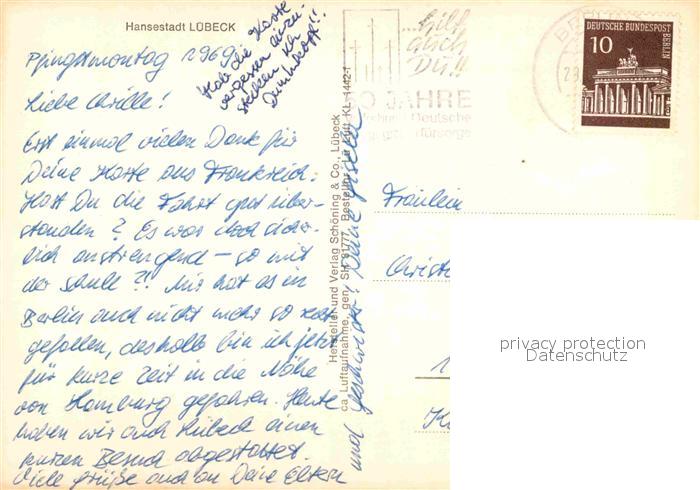 Hansestadt LÜBECK
Pfingstmontag 1969
Hab die Karte
vergessen einzu-
stecken ich
Dummkopf!!
Liebe
Erst einmal vielen Dank für
Deine Karte aus Frankreich.
Hast Du die Fahrt gut über-
standen? Es war doch sicher-
lich anstrengend – so mit
der Schule?!! Mir hat es in
Berlin auch nicht mehr so
gefallen, deshalb bin ich jetzt
für kurze Zeit in die Nähe
von Hamburg gefahren. Heute
haben wir auch Lübeck einen
kurzen Besuch abgestattet.
Viele Grüße auch an Deine Eltern
und Geschwister! Deine Gisela
Hersteller und Verlag Schöning & Co., Lübeck
ca Luftaufnahme, gen. SH 81777, Bestellnr. Lütt KL 1442-1
...hilf
auch
Du!!
50 JAHRE
Deutsche
fürsorge
DEUTSCHE BUNDESPOST
BERLIN
10
Fräulein
privacy protection
Datenschutz